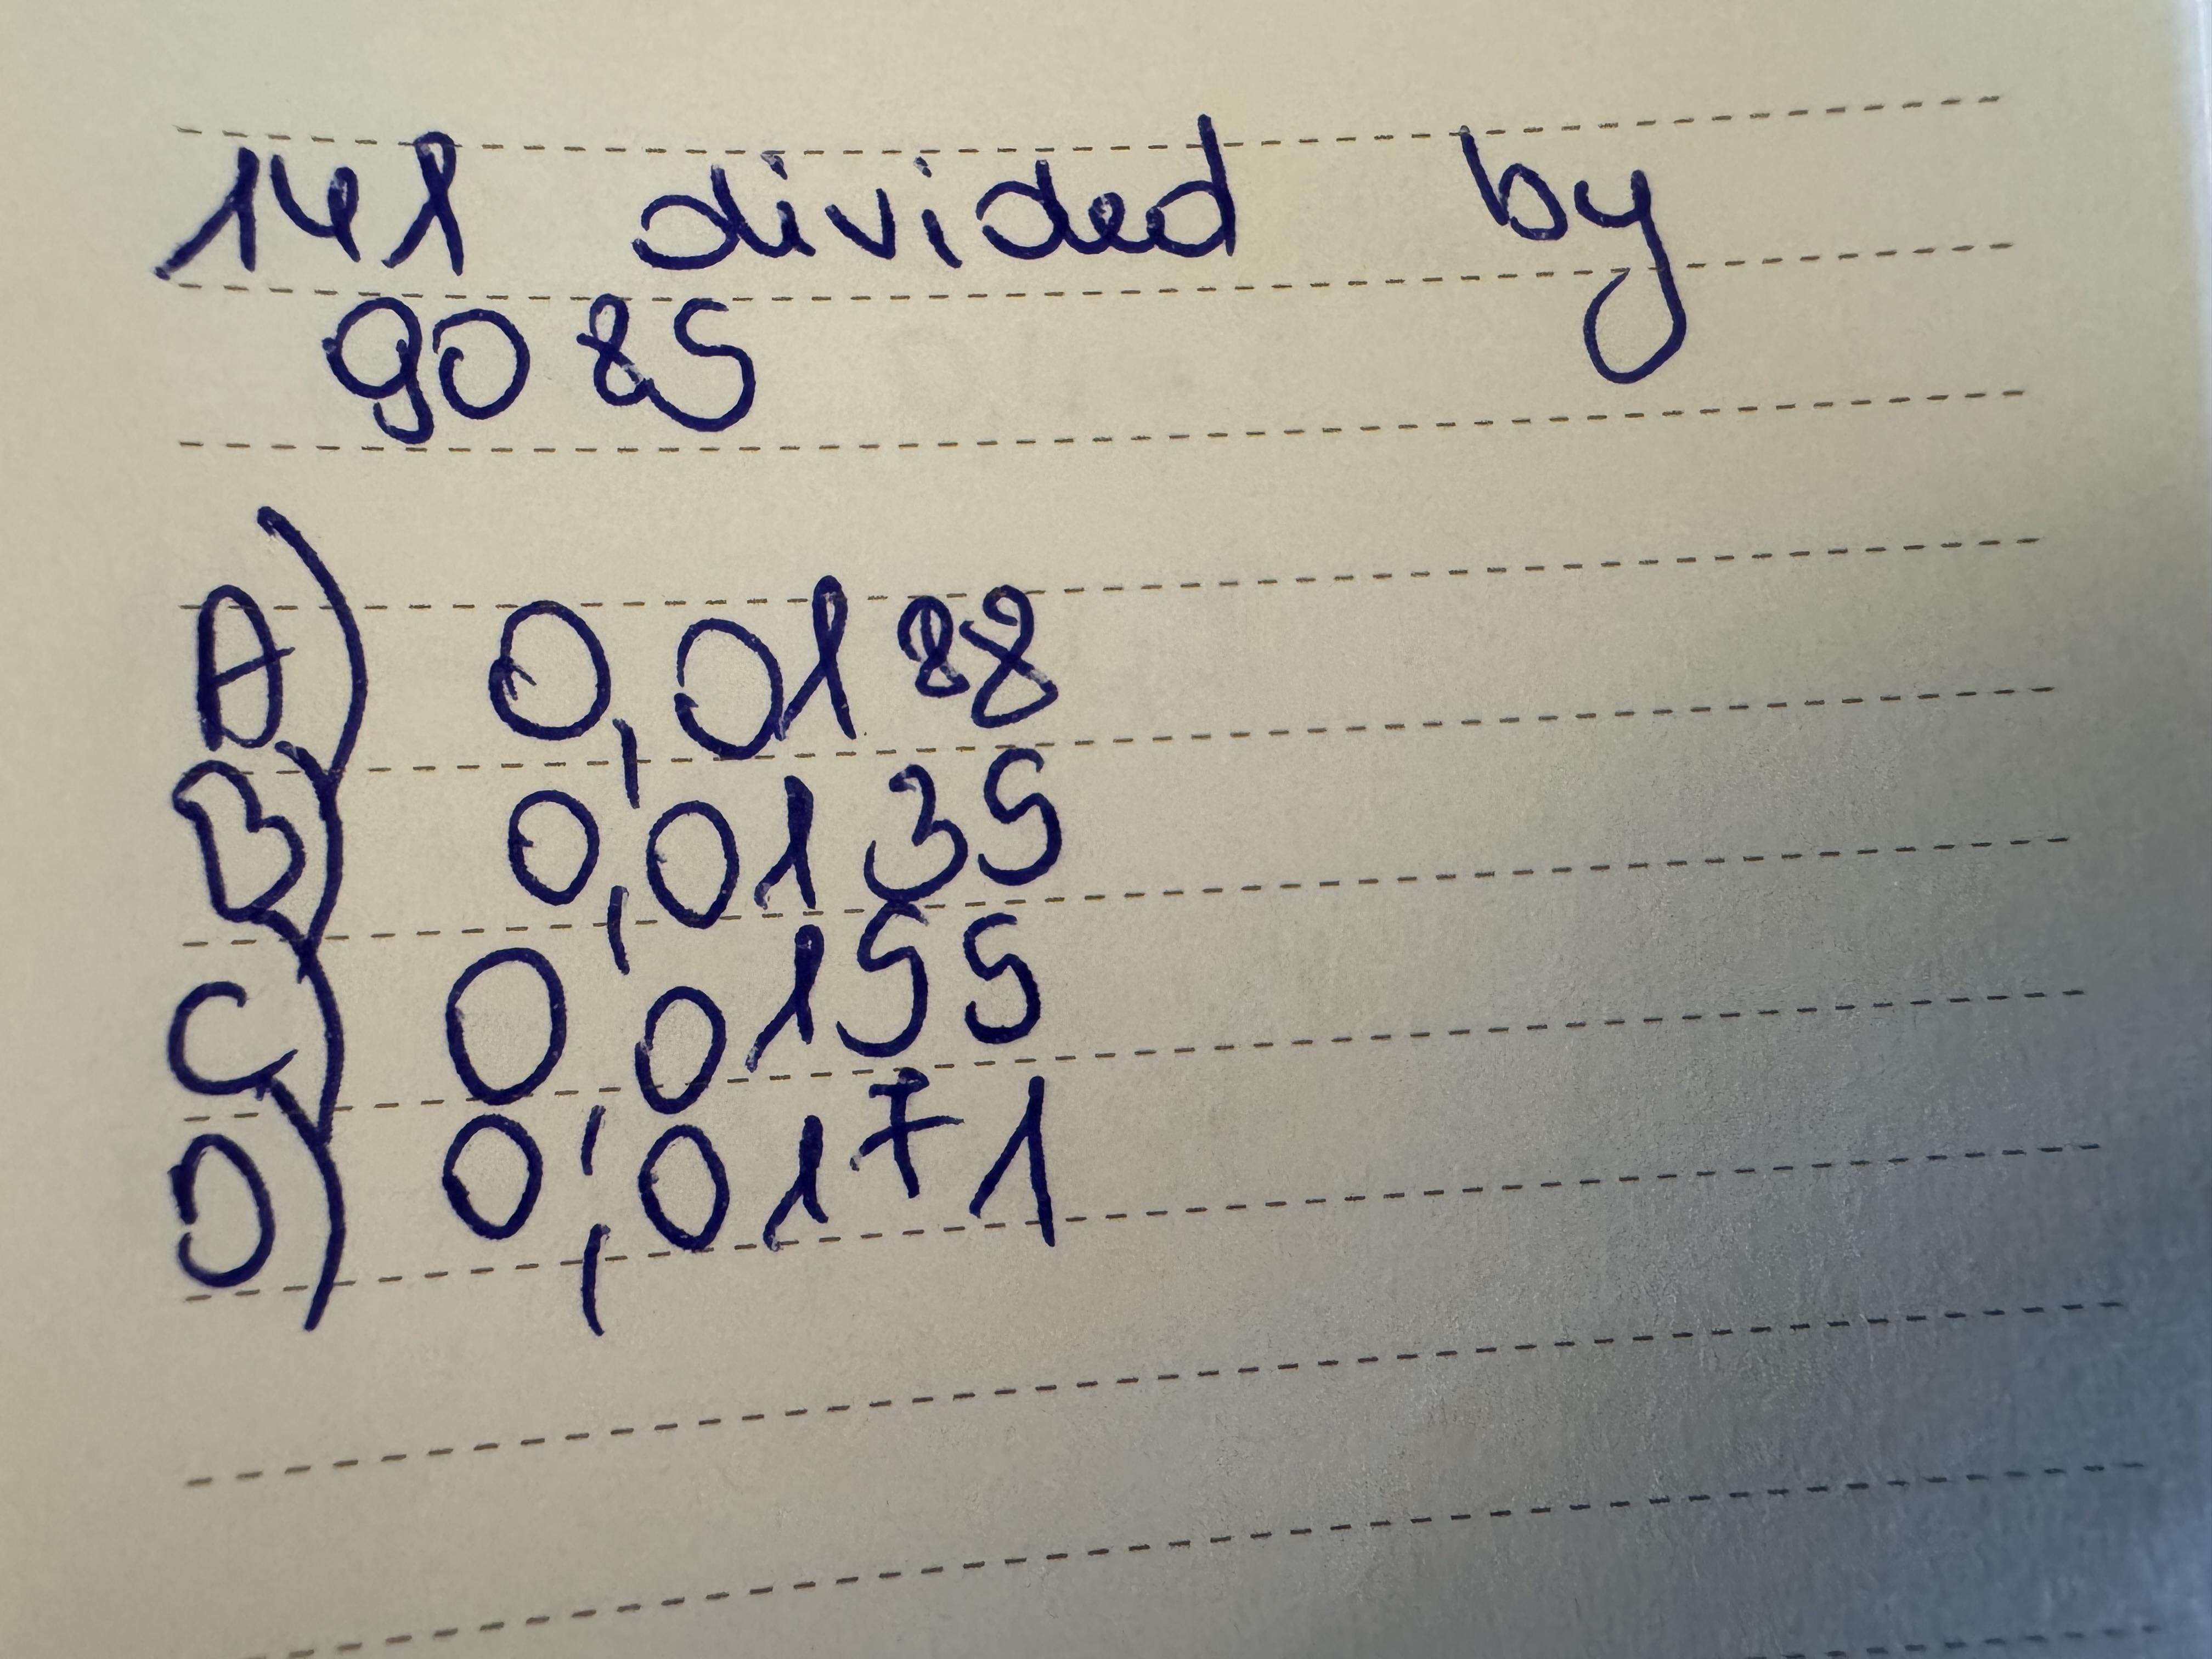 141 divided by
9085
A) 0,0188
B) 0,0135
C) 0,0155
D) 0,0171